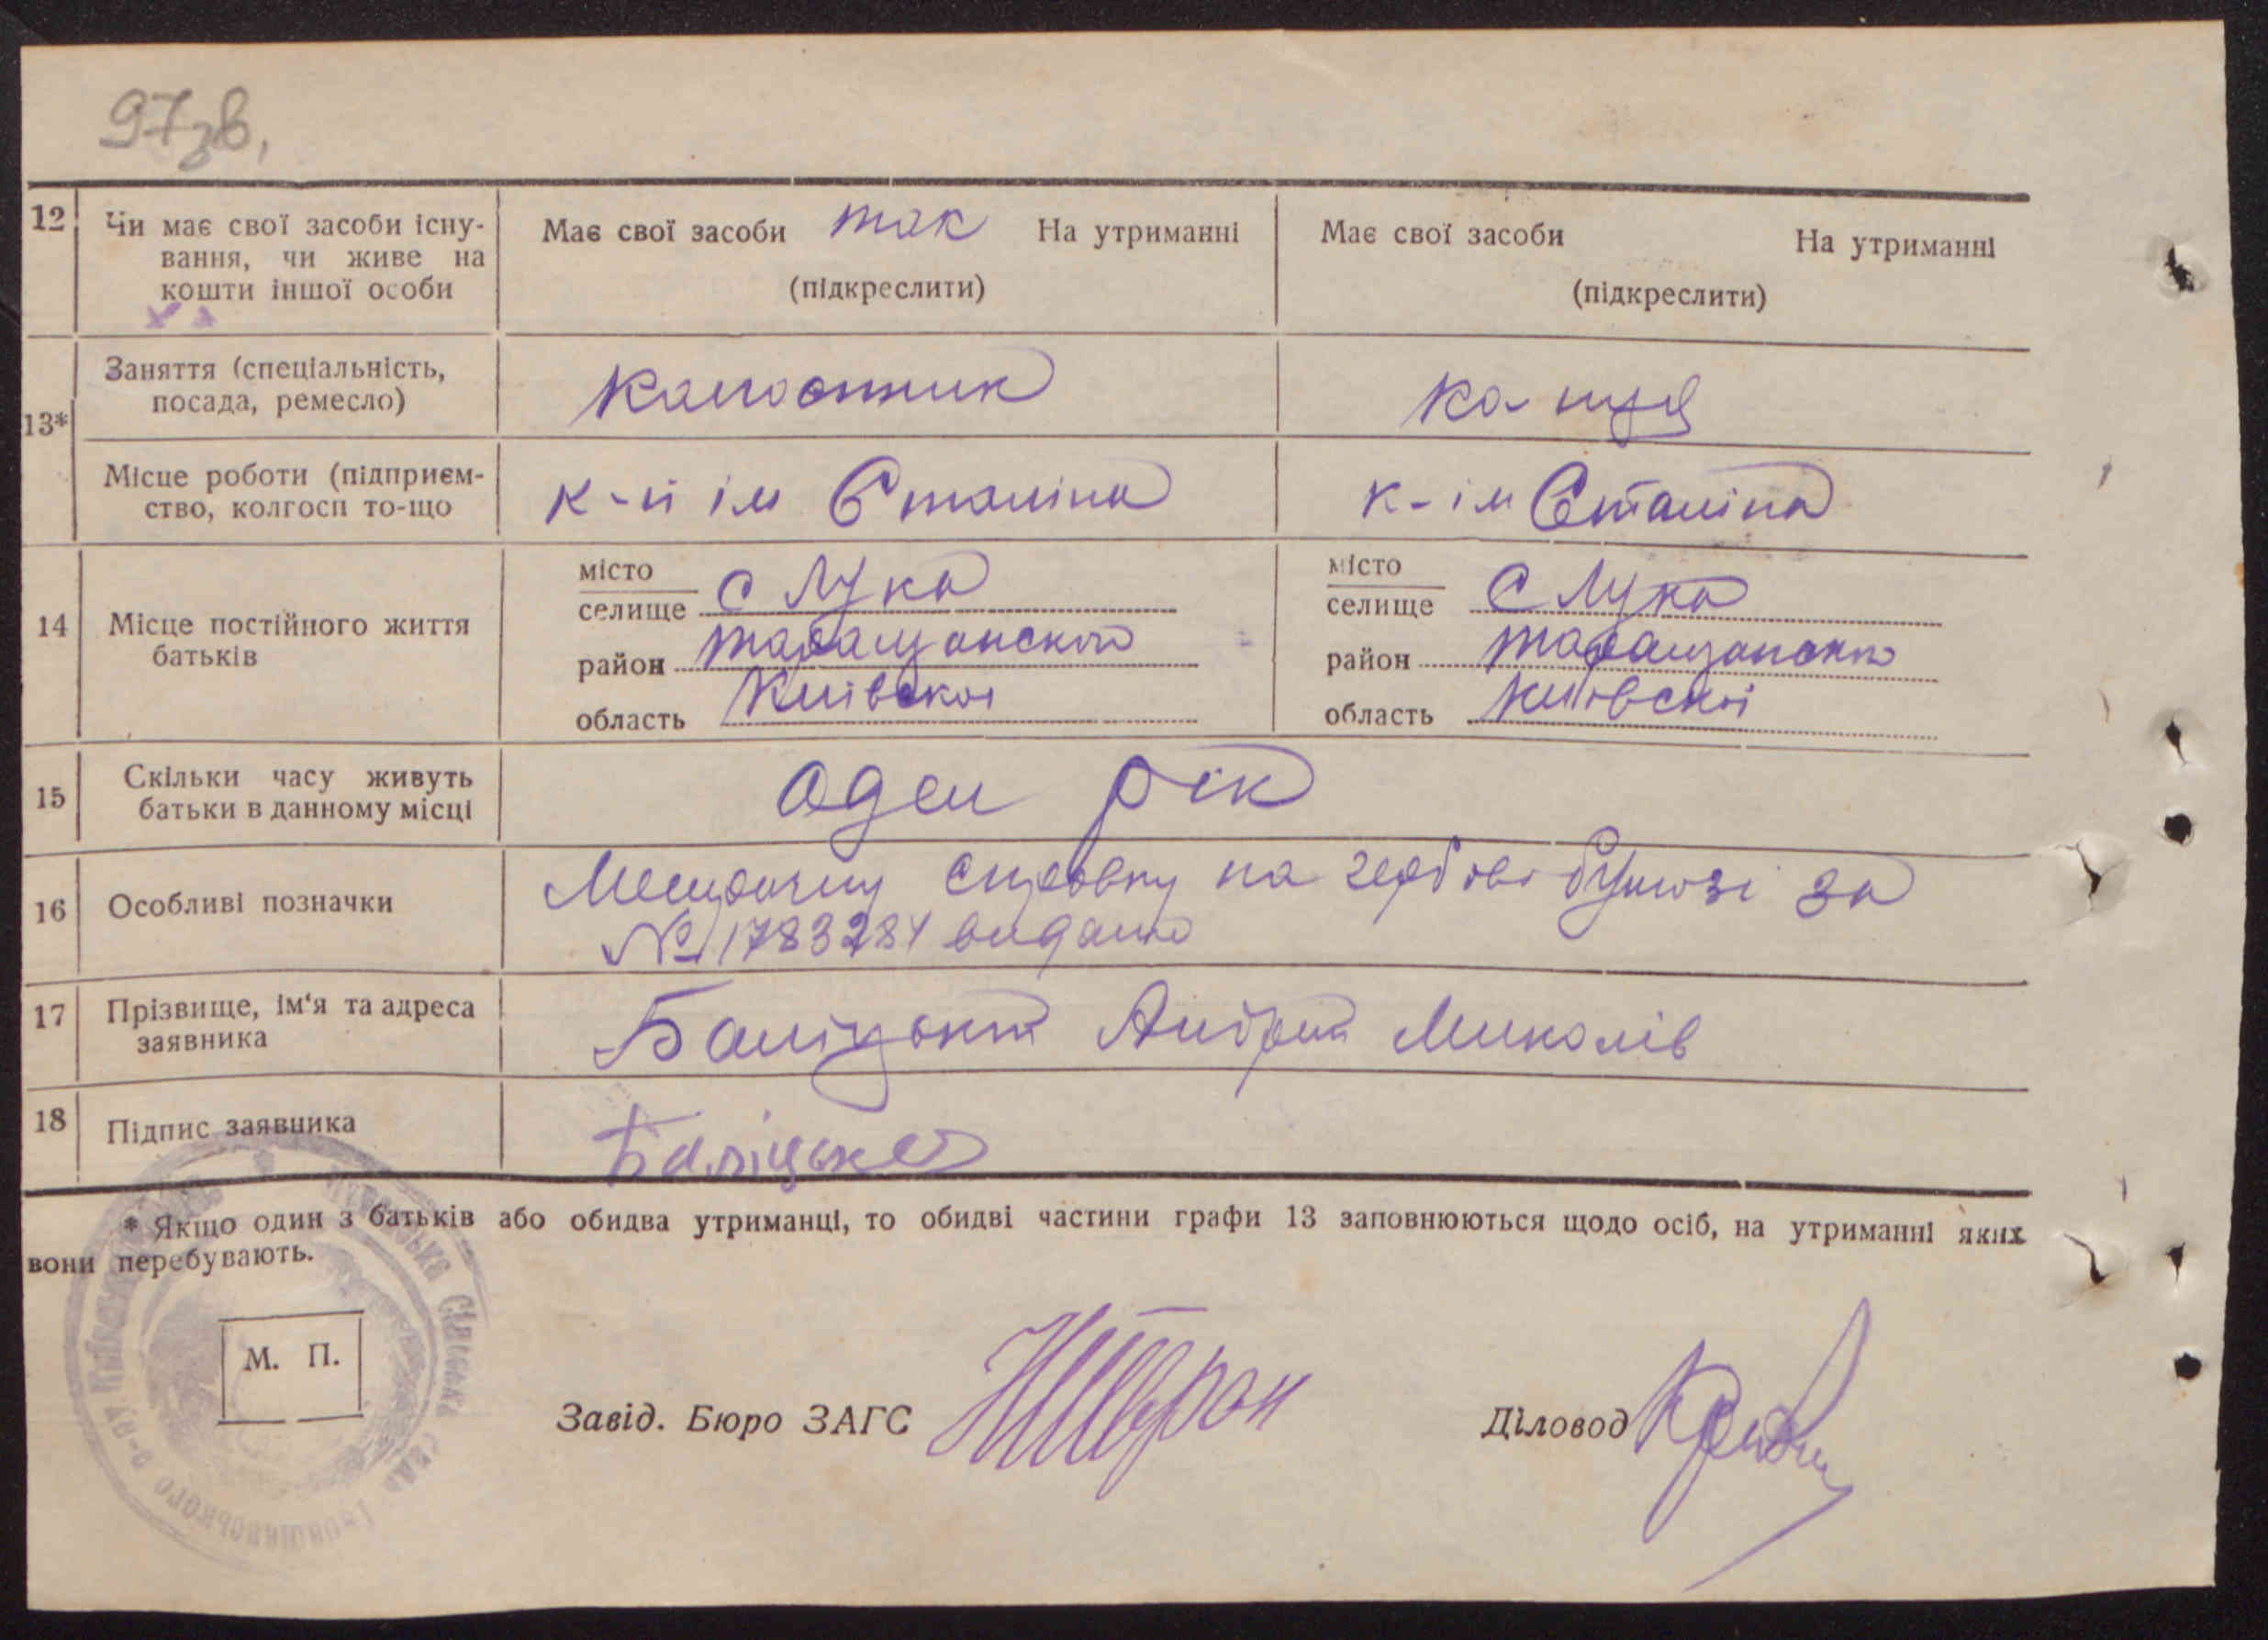 97зв,
12 Чи має свої засоби існу-
вання, чи живе на
кошти іншої особи
Має свої засоби так На утриманні
(підкреслити)
Має свої засоби На утриманні
(підкреслити)
13*
Заняття (спеціальність,
посада, ремесло)
Колгоспник
Місце роботи (підприєм-
ство, колгосп то-що
к-п ім Сталіна
к-ім Сталіна
14 Місце постійного життя
батьків
місто
селище с Лука
район Таращанского
область Київскоі
місто
селище с Лука
район Таращанского
область Київскоі
15 Скільки часу живуть
батьки в данному місці
Оден рік
16 Особливі позначки
справку на гербові бумозі за
№ 1783284 видано
17 Прізвище, ім'я та адреса
заявника
Баліцький Андрій Миколів
18 Підпис заявника
Баліцьке
* Якщо один з батьків або обидва утриманці, то обидві частини графи 13 заповнюються щодо осіб, на утриманні яких
вони перебувають.
М. П.
Завід. Бюро ЗАГС
Діловод